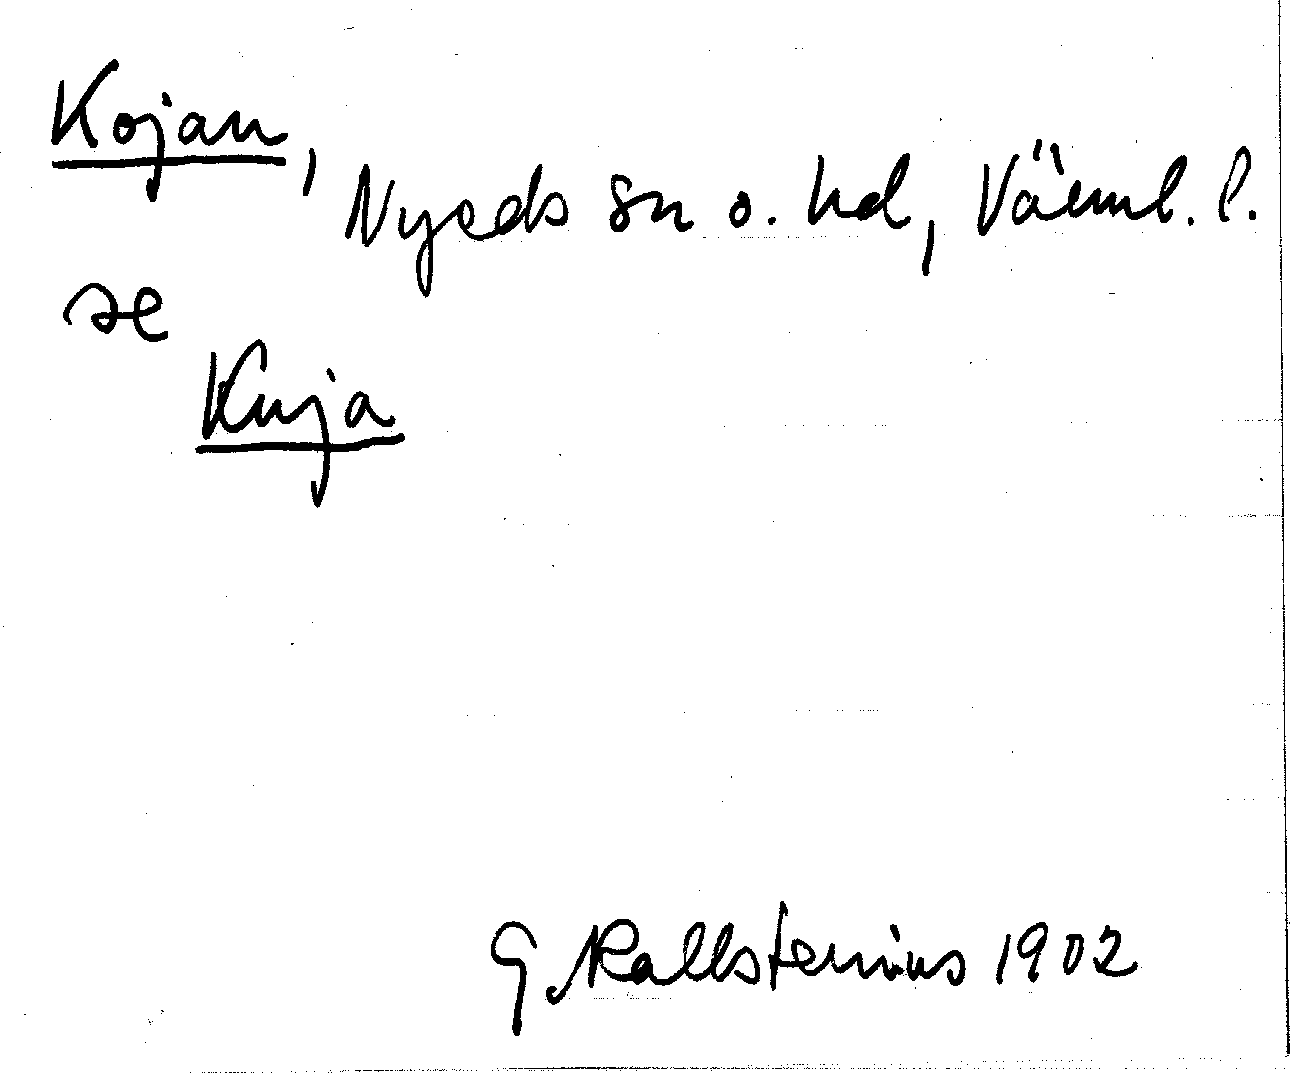 Kojan, Nyeds sn o. hd, Värml. l.
se
Kuja
G. Kallstenius 1902